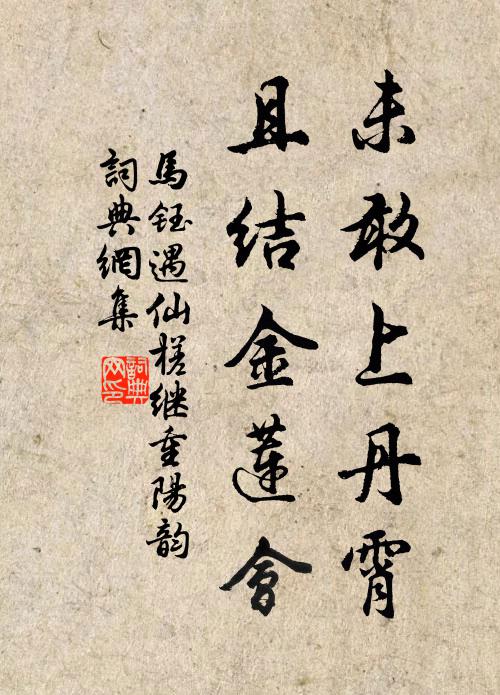 未敢上丹霄
且结金莲會
馬鈺遇仙槎继重陽韵
詞典網集
詞典
网印